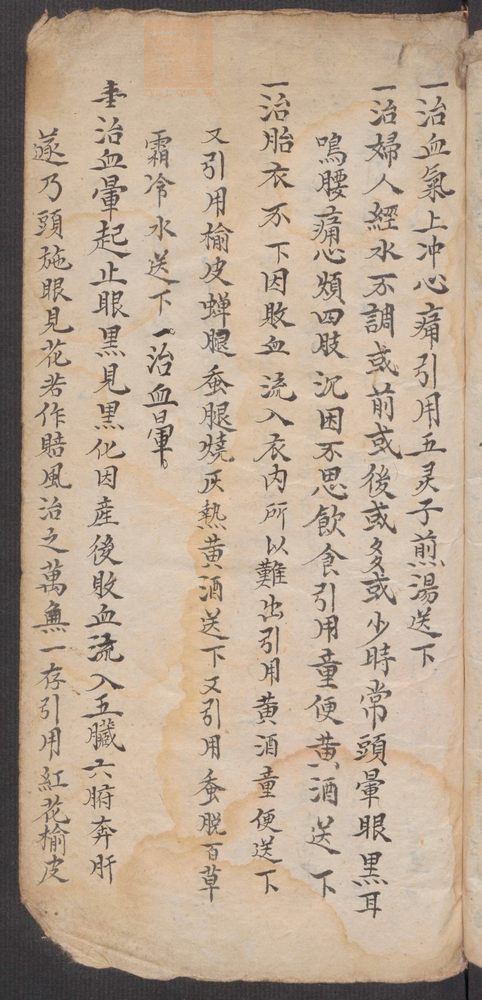 一治血氣上冲心痛引用五灵子煎湯送下
一治婦人經水不調或前或後或多或少時常頭暈眼黑耳
鳴腰痛心煩四肢沉困不思飲食引用童便黄酒送下
一治胎衣不下因敗血流入衣内所以難出引用黄酒童便送下
又引用榆皮蝉腿蚕腿燒灰熱黄酒送下又引用蚕脱百草
霜冷水送下一治血暈
治血暈起止眼黑見黑化因產後敗血流入五臟六腑奔肝
遂乃頭施眼見花若作賠風治之萬無一存引用紅花榆皮